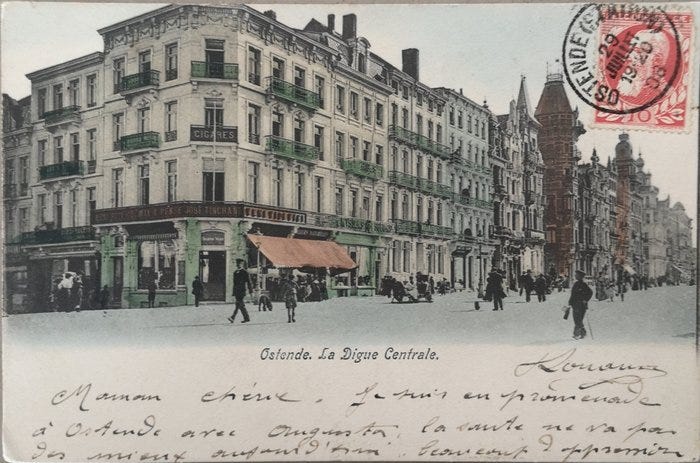 OSTENDE (STATION)
29
JUILLET
19-20
10
CIGARES
JOSE TINCHANT
Ostende. La Digue Centrale.
Maman chérie. Je suis en promenade
à Ostende avec Augusta, la santé ne va pas
des mieux aujourd'hui. beaucoup d'oppression